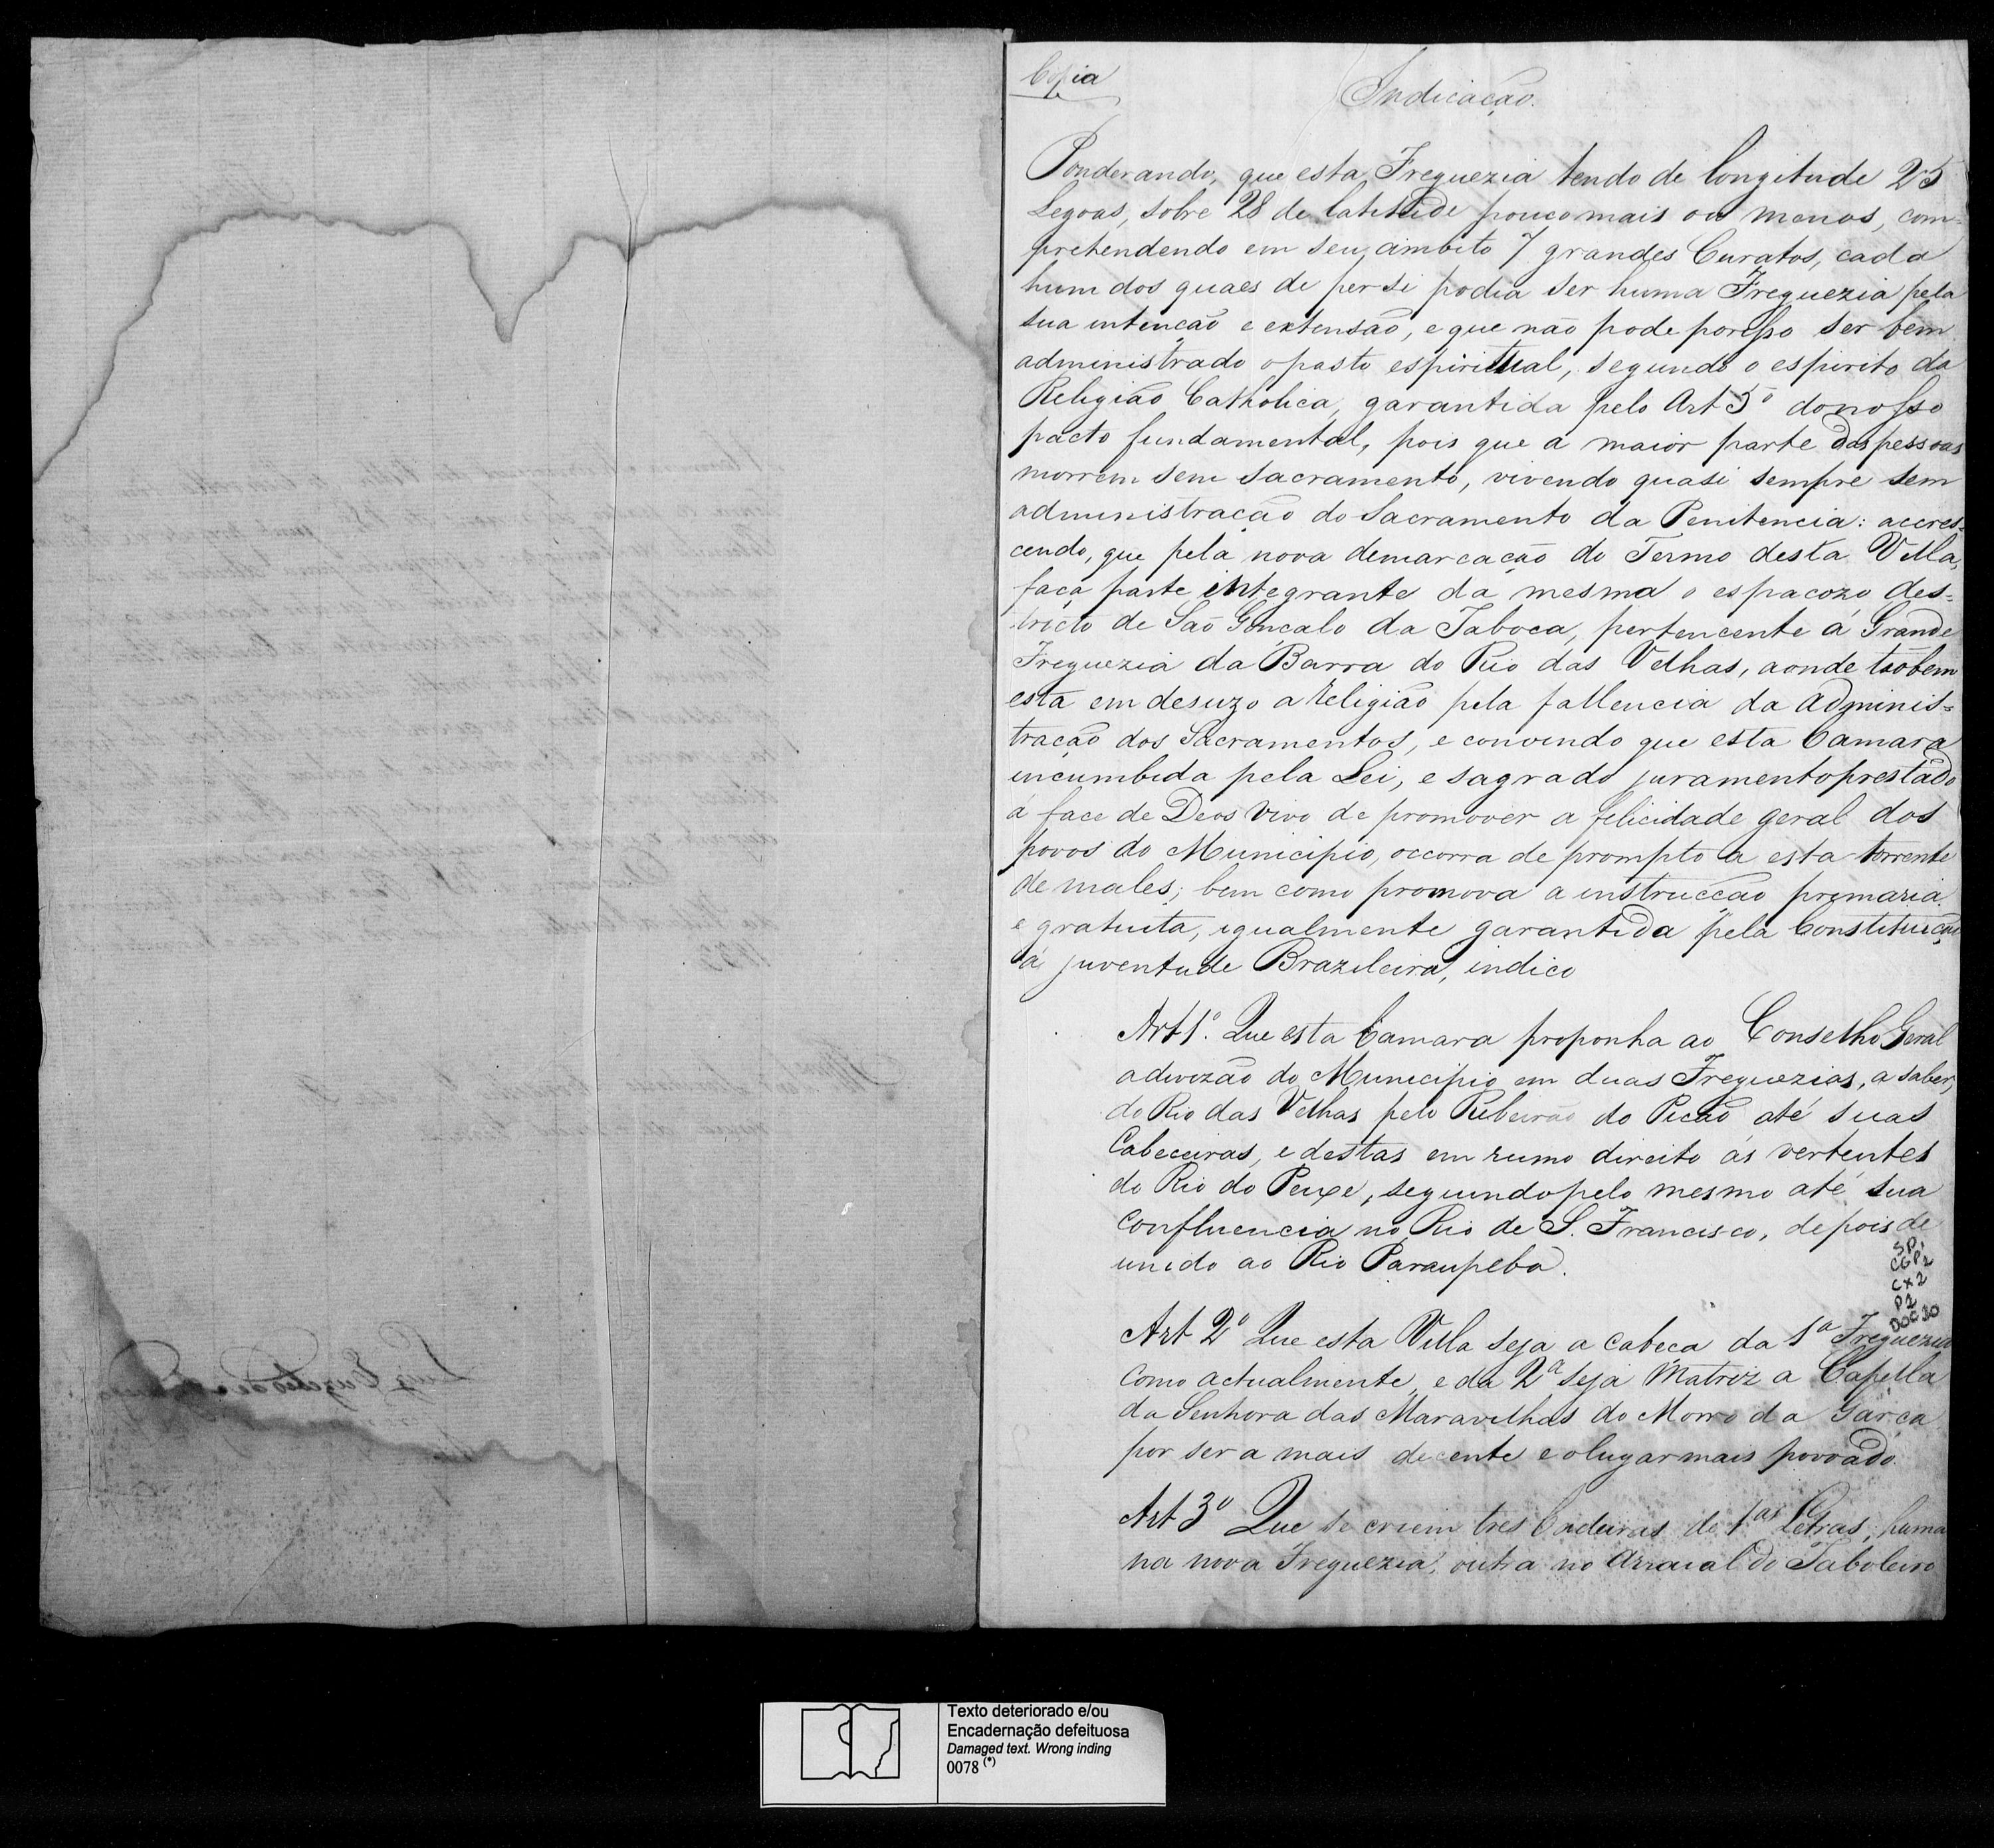 Copia
Indicação.
Ponderando, que esta Freguezia tendo de longitude 25
Legoas, sobre 28 de latitude pouco mais ou menos, com-
prehendendo em seu ambito 7 grandes Curatos, cada
hum dos quaes de per si podia ser huma Freguezia pela
sua intenção e extensão, e que não pode porisso ser bem
administrado o pasto espiritual, segundo o espirito da
Religião Catholica, garantida pelo Art 5º do nosso
pacto fundamental, pois que a maior parte das pessoas
morrem sem sacramento, vivendo quasi sempre sem
administração do Sacramento da Penitencia: accres=
cendo, que pela nova demarcação do Termo desta Villa,
faça parte integrante da mesma o espaçozo des=
tricto de São Gonçalo da Taboca, pertencente á Grande
Freguezia da Barra do Rio das Velhas, aonde tãobem
está em desuzo a religião pela fallencia da Adminis=
tração dos Sacramentos, e convindo que esta Camara
incumbida pela Lei, e sagrado juramento prestado
á face de Deos vivo de promover a felicidade geral dos
povos do Municipio, occorra de prompto a esta torrente
de males; bem como promova a instrucção primaria
e gratuita, igualmente garantida pela Constituição
á juventude Brazileira, indico
Art 1º. Que esta Camara proponha ao Conselho Geral
a divizão do Municipio em duas Freguezias, a saber,
do Rio das Velhas pelo Ribeirão do Picão até suas
Cabeceiras, e destas em rumo direito ás vertentes
do Rio do Peixe, seguindo pelo mesmo até sua
confluencia no Rio de S. Francisco, depois de
unido ao Rio Paraupeba.
SP.
CGP1
CX2
P2
DOC 30
Art 2º Que esta Villa seja a cabeça da 1ª Freguezia
como actualmente, e da 2ª seja Matriz a Capella
da Senhora das Maravilhas do Morro da Garça
por ser a mais decente e o lugar mais povoado.
Art 3º Que se criem tres Cadeiras de 1as Letras, huma
na nova Freguezia, outra no Arraial do Taboleiro
Texto deteriorado e/ou
Encadernação defeituosa
Damaged text. Wrong inding
0078 (*)